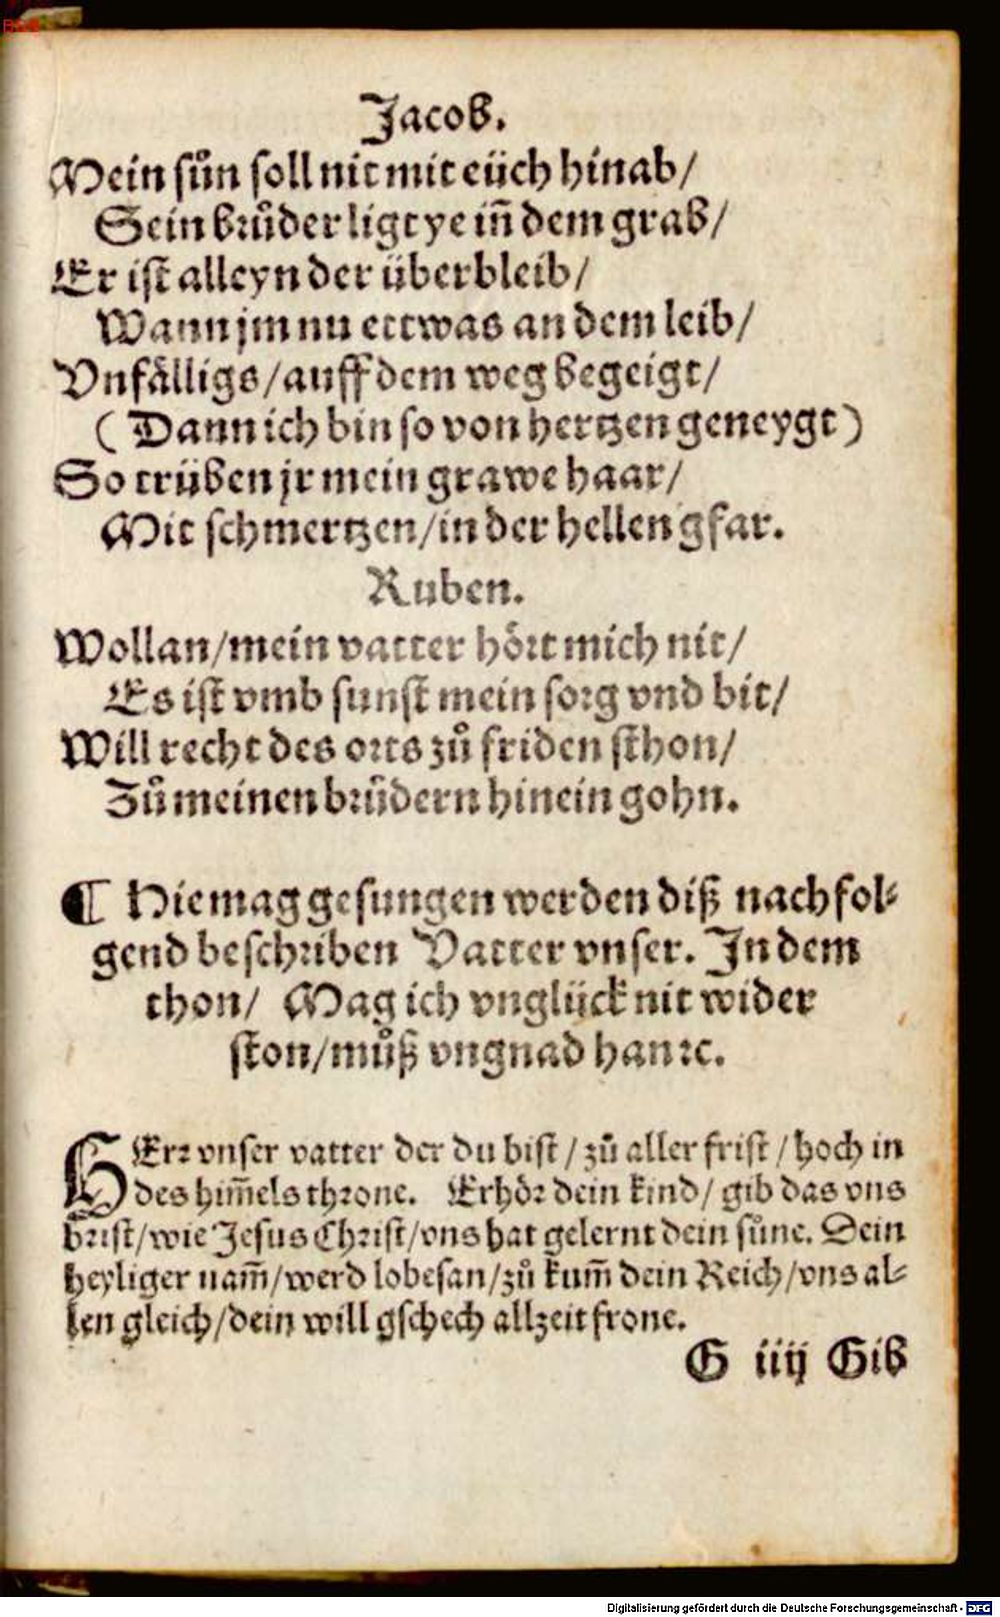 BSB
Jacob.
Mein sůn soll nit mit eüch hinab/
Sein brůder ligt ye iñ dem grab/
Er ist alleyn der überbleib/
Wann jm nu ettwas an dem leib/
Vnfälligs/auff dem weg begeigt/
(Dann ich bin so von hertzen geneygt)
So trüben jr mein grawe haar/
Mit schmertzen/in der hellen gfar.
Ruben.
Wollan/mein vatter hört mich nit/
Es ist vmb sunst mein sorg vnd bit/
Will recht des orts zů friden sthon/
Zů meinen brüdern hinein gohn.
¶ Hie mag gesungen werden diß nachfol⸗
gend beschriben Vatter vnser. In dem
thon/ Mag ich vnglück nit wider
ston/můß vngnad han ꝛc.
HErr vnser vatter der du bist/zů aller frist/hoch in
des him̃els throne. Erhör dein kind/gib das vns
brist/wie Jesus Christ/vns hat gelernt dein sůne. Dein
heyliger nam̃/werd lobesan/zů kum̃ dein Reich/vns al⸗
len gleich/dein will gschech allzeit frone.
G iiij Gib
Digitalisierung gefördert durch die Deutsche Forschungsgemeinschaft - DFG